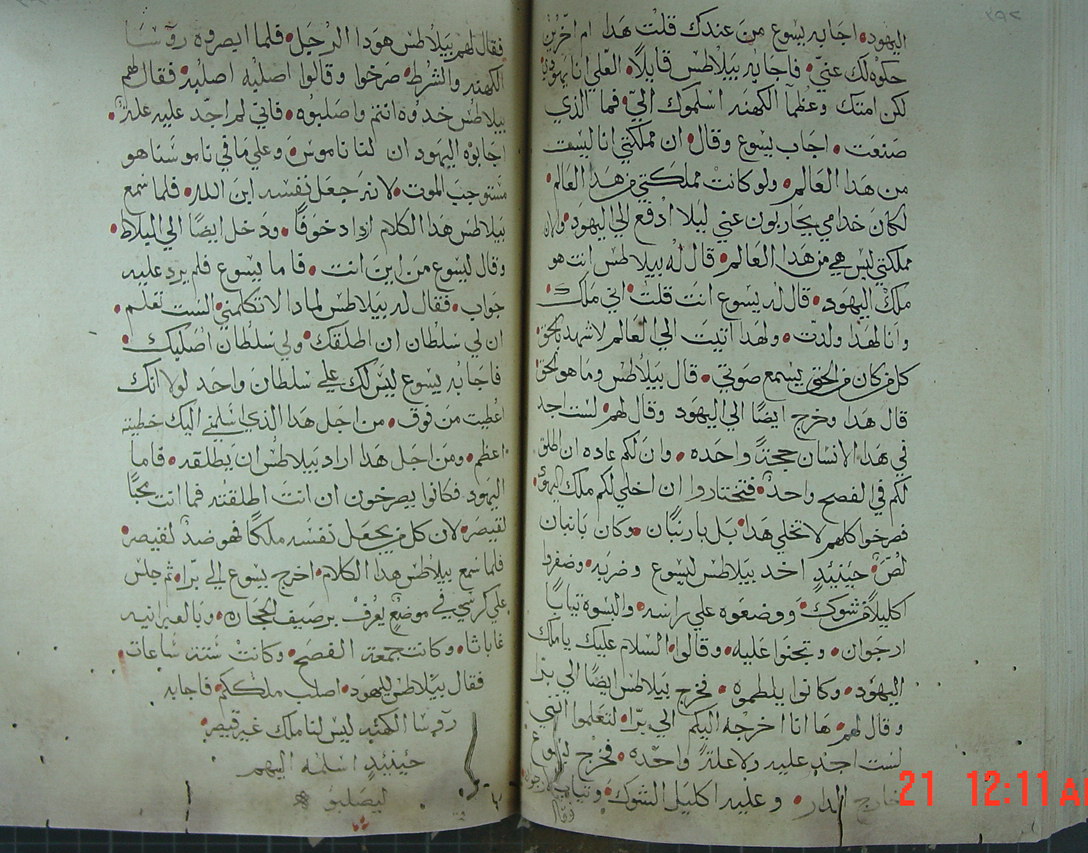 اليهود اجابه يسوع من عندك قلت هدا ام اخرين
حكوه لك عني فاجابه بيلاطس قايلاً العلي انا يهودي
لكن امتك وعظما الكهنه اسلموك اليّ فما الذي
صنعت اجاب يسوع وقال ان مملكتي انا ليست
من هدا العالم ولو كانت مملكتي من هدا العالم
لكان خدامي يحاربون عني ليلا ادفع الي اليهود والان
مملكتي ليس هي من هدا العالم قال له بيلاطس انت هو
ملك اليهود قال له يسوع انت قلت اني ملك
وانا لهدا ولدت ولهدا اتيت الي العالم لاشهد بالحق
كل من كان من الحق يسمع صوتي قال بيلاطس وما هو الحق
قال هدا وخرج ايضًا الي اليهود وقال لهم لست اجد
في هدا الانسان حجةً واحده وان لكم عاده ان اطلق
لكم في الفصح واحد فتختاروا ان اخلي لكم ملك اليهود
فصرخوا كلهم لا تخلي هدا بل باربان وكان بانبان
لص حينيدٍ اخد بيلاطس ليسوع وضربه وضفروا
اكليلاً من شوك ووضعوه علي راسه والبسوه تيابا
ارجوان ويجتوا عليه وقالوا السلام عليك يا ملك
اليهود وكانوا يلطموه فخرج بيلاطس ايضًا الي برّا
وقال لهم ها انا اخرجه اليكم الي برّا لتعلموا انني
لست اجد عليه ولا علةً واحده فخرج يسوع
خارج الدار وعليه اكليل الشوك وتياب ارجوان
وقال
فقال لهم بيلاطس هودا الرجل فلما ابصروه روسا
الكهنه والشرط صرخوا وقالوا اصلبه اصلبه فقال لهم
بيلاطس خدوه انتم واصلبوه فاني لم اجد عليه علة
اجابوه اليهود ان لنا ناموس وعلي ما في ناموسنا هو
مستوجب الموت لانه جعل نفسه ابن الله فلما سمع
بيلاطس هدا الكلام ازداد خوفًا ودخل ايضًا الي البلاط
وقال ليسوع من اين انت فاما يسوع فلم يرد عليه
جواب فقال له بيلاطس لمادا لا تكلمني الست تعلم
ان لي سلطان ان اطلقك ولي سلطان اصلبك
فاجابه يسوع ليس لك علي سلطان واحد لولا انك
اعطيت من فوق من اجل هدا الدي اسلمني اليك خطيته
اعظم ومن اجل هدا اراد بيلاطس ان يطلقه فاما
اليهود فكانوا يصرخون ان انت اطلقته فما انت محبًا
لقيصر لان كل من يجعل نفسه ملكًا فهو ضد لقيصر
فلما سمع بيلاطس هدا الكلام اخرج يسوع الي برّا تم جلس
علي كرسي في موضع يعرف برصيف الحجاره وبالعبرانيه
غاباثا وكانت جمعة الفصح وكانت ستة ساعات
فقال بيلاطس لليهود اصلب ملككم فاجابه
روسا الكهنه ليس لنا ملك غير قيصر
حينيدٍ اسلمه اليهم
ليصلبو
21 12:11 AM